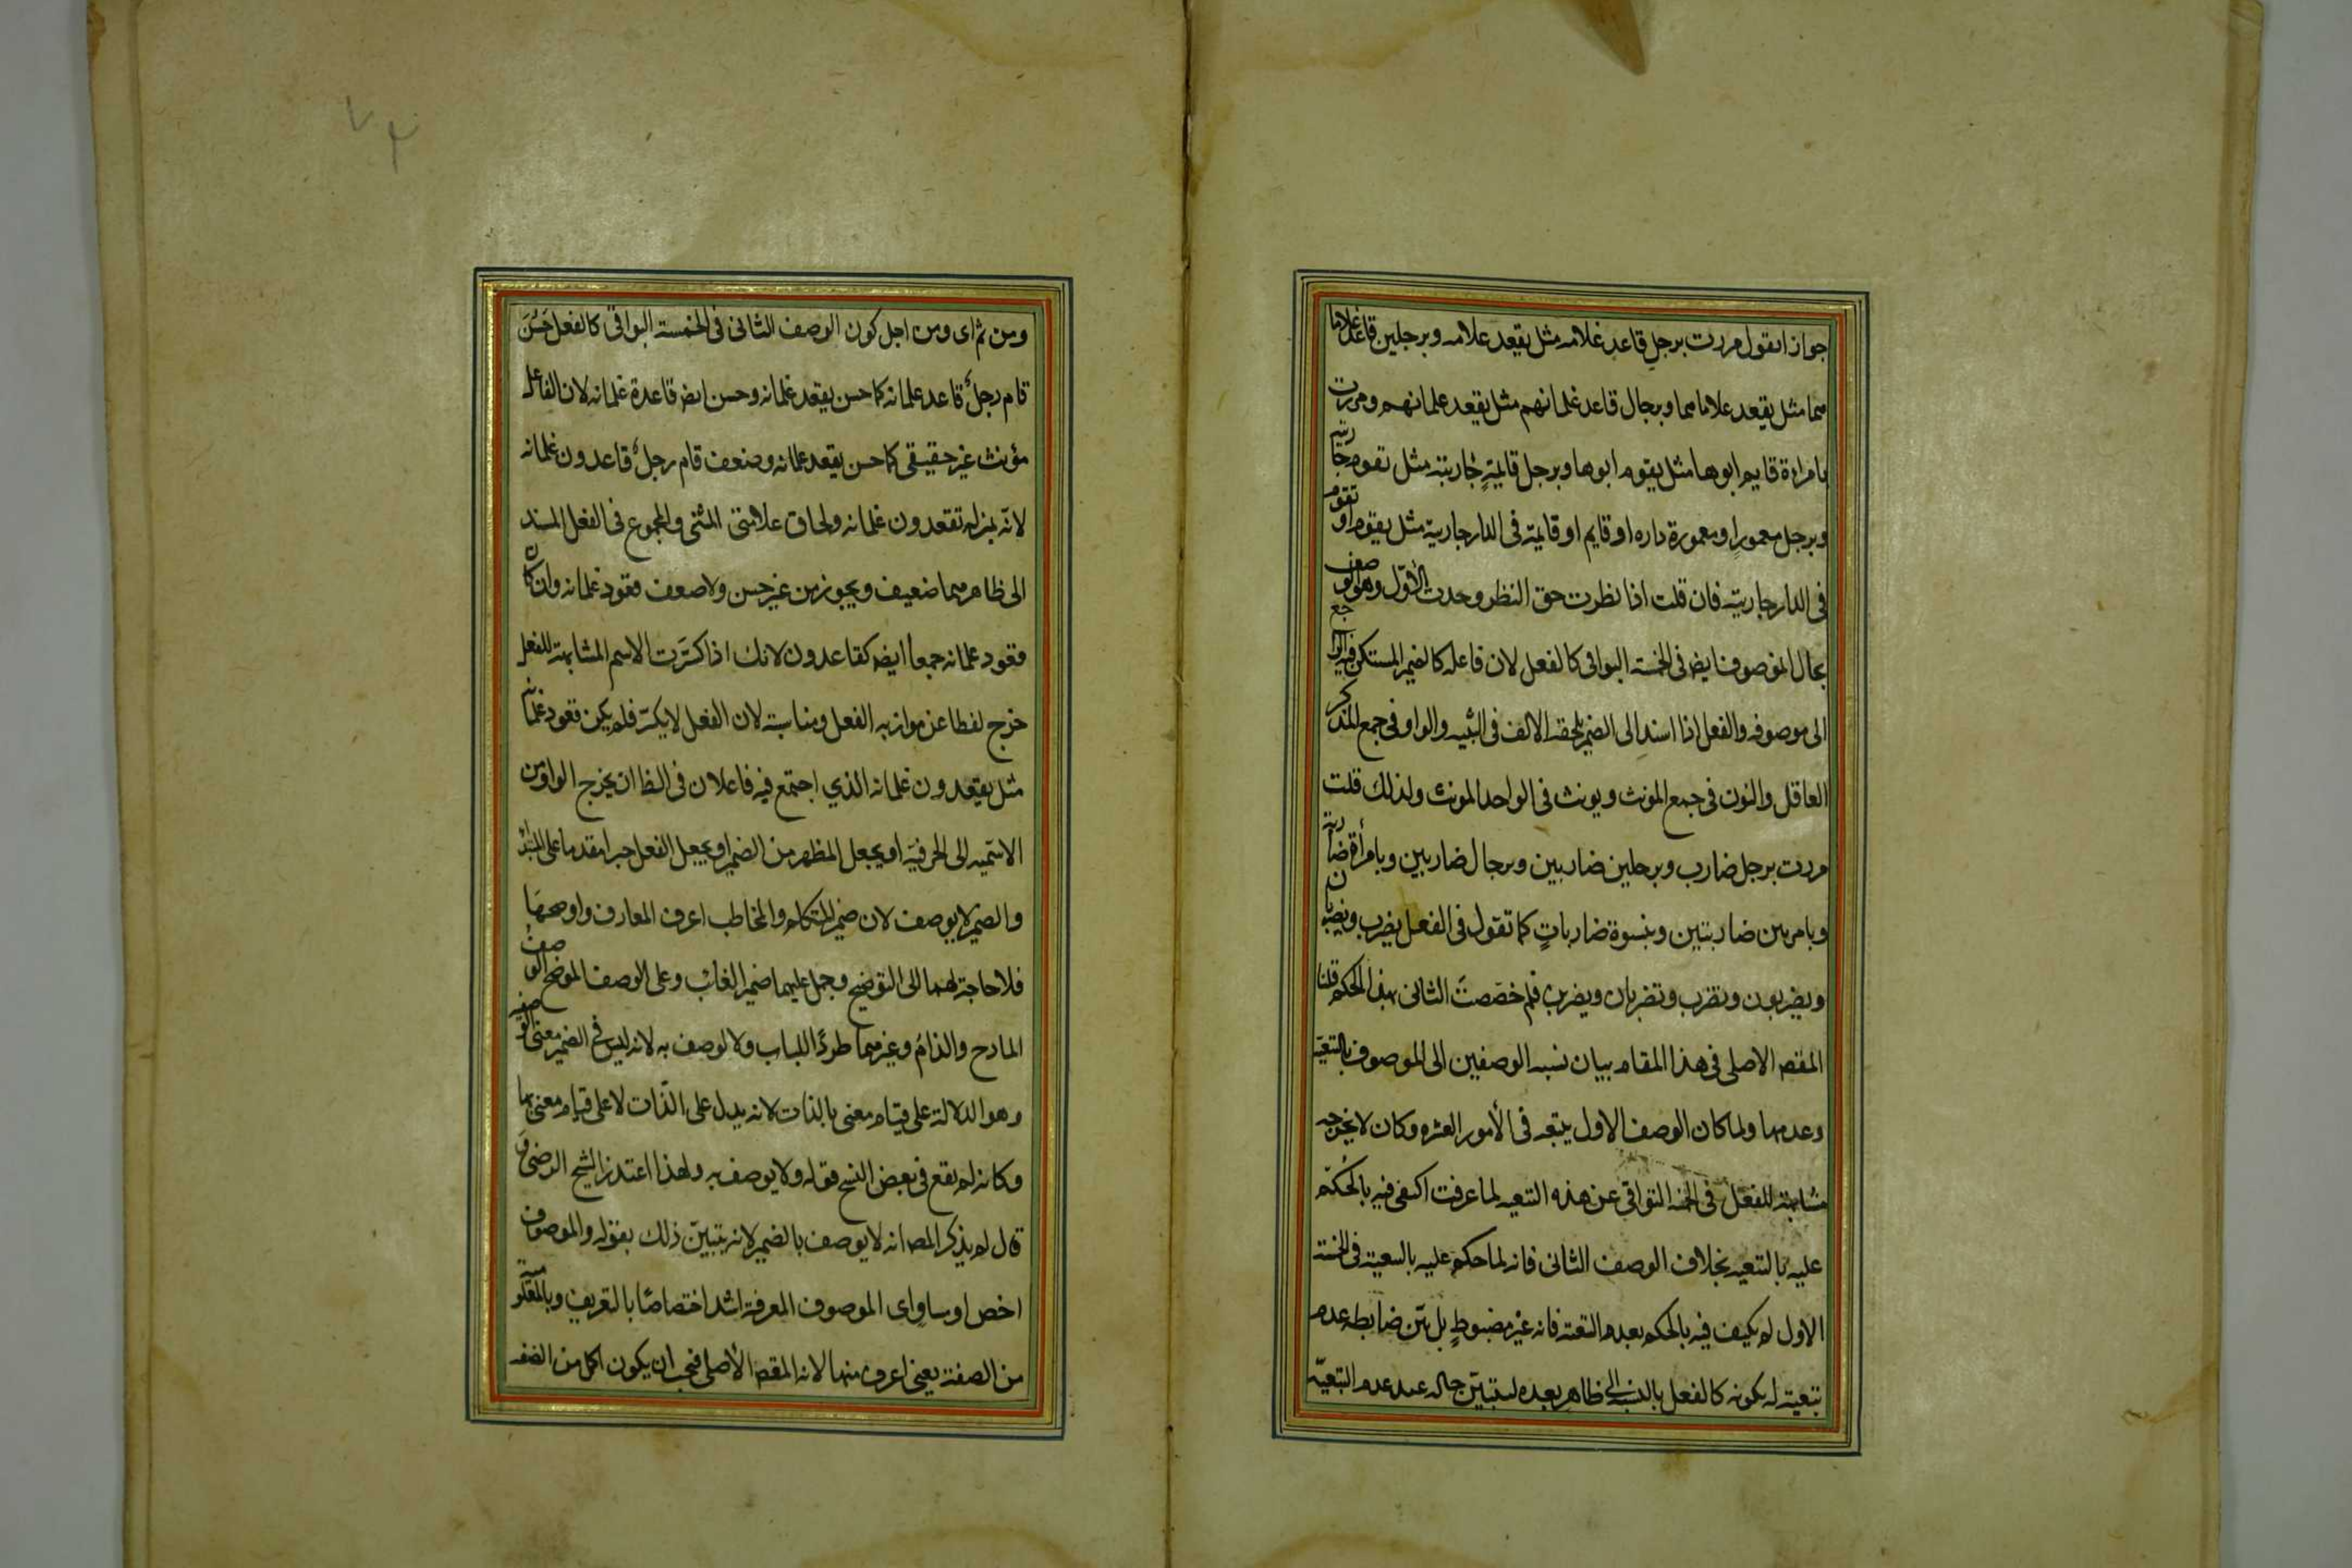 جوازا تقول مررت برجل قاعد غلامه مثل يقعد غلامه وبرجلين قاعد غلاما
هما مثل يقعد غلاماهما وبرجال قاعد غلمانهم مثل يقعد غلمانهم ومررت
بامراءة قايم ابوها مثل يقوم ابوها وبرجل قايمةٍ جاريته مثل تقوم جاريته
وبرجل معمورٍ او معمورة داره او قايم او قايمة فى الدار جارية مثل يقوم او تقوم
فى الدار جاريته فان قلت اذا نظرت حق النظر وجدت الأوّل وهو الوصف
بحال الموصوف ايضا فى الخمسة البواقى كالفعل لان فاعله كالضمير المستكن فيه الراجع
الى موصوفه والفعل اذا اسند الى الضمير يلحقه الالف فى التثنيه والواو فى جمع المذكر
العاقل والنون فى جمع المونث ويونث فى الواحد المونث ولذلك قلت
مررت برجل ضارب وبرجلين ضاربين وبرجال ضاربين وبامرأة ضاربة
وبامرتين ضاربتين وبنسوة ضارباتٍ كما تقول فى الفعل يضرب ويضربان
ويضربون وتضرب وتضربان ويضربن فلم خصّصتَ الثانى بهذا الحكم قلنا
المقصه الاصلى فى هذا المقام بيان نسبه الوصفين الى الموصوف بالتبعيّة
وعدمها ولما كان الوصف الاول يتبعه فى الأمور العشره وكان لا يخرجه
مشابهته للفعل فى الخمسه البواقى عن هذه التبعيه لما عرفت اكتفى فيه بالحكم
عليه بالتبعيه بخلاف الوصف الثانى فانه لما حكم عليه بالتبعية فى الخمسة
الاول لم يكتف فيه بالحكم بعدم التبعيته فانه غير مضبوطٍ بل بيّن ضابطه عدم
تبعيته له بكونه كالفعل بالنسبة الى ظاهر بعده ليتبيّن حاله عند عدم التبعيّه
ومن ثم اى ومن اجل كون الوصف الثانى فى الخمسة البواقى كالفعل حَسُنَ
قام رجلٌ قاعد غلمانه كما حسن يقعد غلمانه وحسن ايض قاعدة غلمانه لان الفاعل
مؤنث غير حقيقى كما حسن يقعد غلمانه وضعف قام رجلٌ قاعدون غلمانه
لانّه بمنزله تقعدون غلمانه ولحاق علامتى المثنى والمجموع فى الفعل المسند
الى ظاهرهما ضعيف ويجوز من غير حسن ولا ضعف قعود غلمانه وان كان
قعود غلمانه جمعاً ايضه كقاعدون لانك اذا كسّرت الاسم المشابهته للفعل
خرج لفظا عن موازنه الفعل ومناسبته لان الفعل لا يكسّر فلم يكن قعود غلمانه
مثل يقعدون غلمانه الذي اجتمع فيه فاعلان فى الظا ان يخرج الواو من
الاسميه الى الحرفيّة او يجعل المظهر من الضمير او يجعل الفعل خبرا مقدما على المبتدأ
والضمير لا يوصف لان ضمير المتكلم والمخاطب اعرف المعارف واوضحها
فلا حاجة لهما الى التوضيح وحمل عليهما ضمير الغائب وعلى الوصف الموضح الوصف
المادح والذامّ وغيرهما طردًا للباب ولا لوصف به لانه ليس فى الضمير معنى الوصفيه
وهو الدلالة على قيام معنى بالذات لانه يدل على الذّات لا على قيام معنى بها
وكانه لم يقع فى بعض النسخ قوله ولا يوصف به ولهذا اعتذر الشيخ الرضى و
قال لم يذكر المصه انه لا يوصف بالضمير لانه يتبيّن ذلك بقوله والموصوف
اخص او مساوٍ اى الموصوف المعرفة اشد اختصاصًا بالتعريف وبالمعلومية
من الصفة يعنى اعرف منها لانه المقصه الأصلى فيجب ان يكون اكمل من الصفه